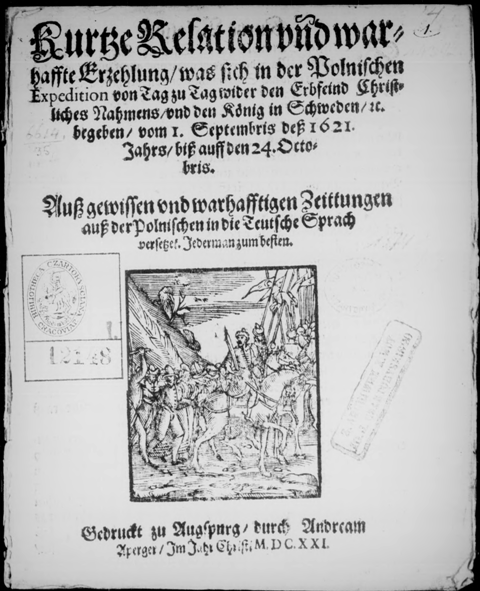 Kurtze Relation vnd war-
haffte Erzehlung/ was sich in der Polnischen
Expedition von Tag zu Tag wider den Erbfeind Christ-
liches Nahmens/ vnd den König in Schweden/ ꝛc.
begeben/ vom 1. Septembris deß 1621.
Jahrs/ biß auff den 24. Octo-
bris.
Auß gewissen vnd warhafftigen Zeittungen
auß der Polnischen in die Teutsche Sprach
versetzet. Jederman zum besten.
1.
BIBLIOTHECA CZARTORYSCIANA
CRACOVIAE
I.
12148
Gedruckt zu Augspurg/ durch Andream
Aperger/ Im Jahr Christi M.DC.XXI.